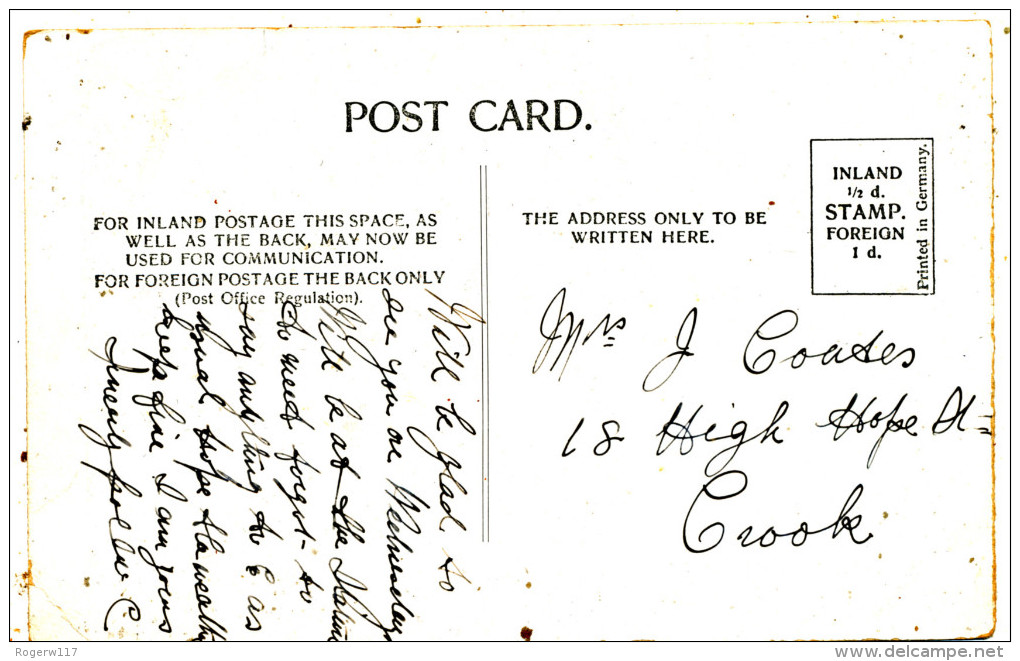 POST CARD.
FOR INLAND POSTAGE THIS SPACE, AS
WELL AS THE BACK, MAY NOW BE
USED FOR COMMUNICATION.
FOR FOREIGN POSTAGE THE BACK ONLY
(Post Office Regulation).
THE ADDRESS ONLY TO BE
WRITTEN HERE.
INLAND
1/2 d.
STAMP.
FOREIGN
1 d.
Printed in Germany.
Will be glad to
see you on Wednesday
Will be at the Station
to meet forgot to
say anything to E as
usual hope the weather
keeps fine I am yours
C
Mrs J Coates
18 High Hope St
Crook
Rogerw117
delcampe.net